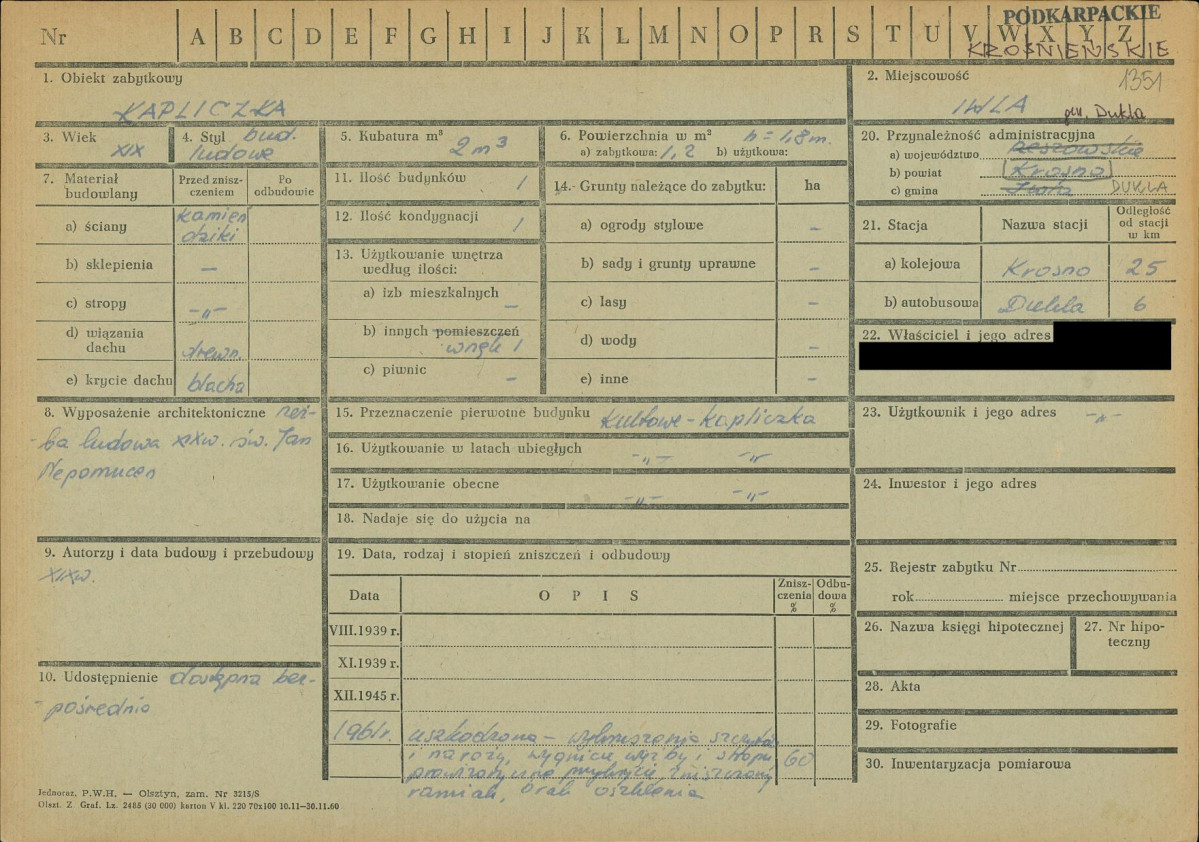 Nr A B C D E F G H I J K L M N O P R S T U V W X Y Z
PODKARPACKIE
KROŚNIEŃSKIE
1. Obiekt zabytkowy
KAPLICZKA
2. Miejscowość
1351
IWLA
gm. Dukla
3. Wiek
XIX
4. Styl bud.
ludowe
5. Kubatura m³ 2 m³
6. Powierzchnia w m² h = 1,8 m.
a) zabytkowa: 1,2 b) użytkowa:
7. Materiał budowlany
Przed zniszczeniem
Po odbudowie
a) ściany kamień
dziki
b) sklepienia –
c) stropy -„-
d) wiązania dachu drewn.
e) krycie dachu blacha
8. Wyposażenie architektoniczne rzeź-
-ba ludowa XIXw. św. Jan
Nepomucen
9. Autorzy i data budowy i przebudowy
XIXw.
10. Udostępnienie dostępna bez-
-pośrednio
11. Ilość budynków 1
12. Ilość kondygnacji 1
13. Użytkowanie wnętrza
według ilości:
a) izb mieszkalnych –
b) innych pomieszczeń
wnęk 1
c) piwnic –
14. Grunty należące do zabytku: ha
a) ogrody stylowe –
b) sady i grunty uprawne –
c) lasy –
d) wody –
e) inne –
15. Przeznaczenie pierwotne budynku Kultowe - kapliczka
16. Użytkowanie w latach ubiegłych -„- -„-
17. Użytkowanie obecne -„- -„-
18. Nadaje się do użycia na
19. Data, rodzaj i stopień zniszczeń i odbudowy
Data OPIS Zniszczenia % Odbudowa %
VIII.1939 r.
XI.1939 r.
XII.1945 r.
1961r. uszkodzona - wykruszenia szczytu
i naroży, wygnicie więźby i stropu 60
prowizoryczne przykrycie, zniszczony
ramiak, brak oszklenia
20. Przynależność administracyjna
a) województwo Rzeszowskie
b) powiat Krosno
c) gmina DUKLA
21. Stacja Nazwa stacji Odległość od stacji w km
a) kolejowa Krosno 25
b) autobusowa Dukla 6
22. Właściciel i jego adres
23. Użytkownik i jego adres -„-
24. Inwestor i jego adres
25. Rejestr zabytku Nr
rok miejsce przechowywania
26. Nazwa księgi hipotecznej
27. Nr hipoteczny
28. Akta
29. Fotografie
30. Inwentaryzacja pomiarowa
Jednoraz. P.W.H. — Olsztyn, zam. Nr 3215/S
Olszt. Z. Graf. Lz. 2485 (30 000) karton V kl. 220 70x100 10.11—30.11.60